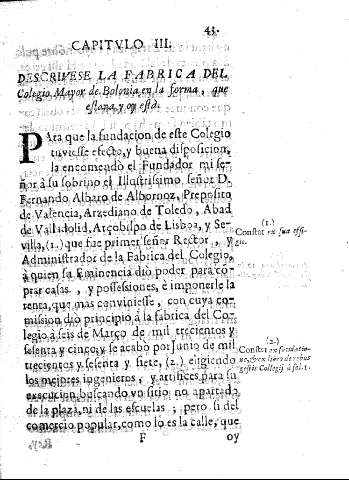 43.
CAPITVLO III.
DESCRIVESE LA FABRICA DEL
Colegio Mayor de Bolonia en la forma, que
estava, y oy està.
PAra que la fundacion de este Colegio
tuviesse efecto, y buena disposicion,
la encomendò el Fundador mi se-
ñor à su sobrino el Illustrissimo señor D.
Fernando Albaro de Albornoz, Preposito
de Valencia, Arzediano de Toledo, Abad
de Valladolid, Arçobispo de Lisboa, y Se-
villa, (1.) que fue primer señor Rector, y
Administrador de la Fabrica del Colegio,
à quien su Eminencia diò poder para cõ-
prar casas, y possesiones, è imponerle la
renta, que mas conviniesse, con cuya co-
mission diò principio à la fabrica del Co-
legio, à seis de Março de mil trecientos y
sesenta y cinco, y se acabo por Junio de mil
trecientos y sesenta y siete, (2.) eligiendo
los mejores ingenieros, y artifices para su
execucion, buscando vn sitio no apartado
de la plaza, ni de las escuelas; pero si del
comercio popular, como lo es la calle, que
F oy
(1.)
Constat ex sua effi-
gie.
(2.)
Constat ex fundatio-
ne, & ex libro de rebus
gestis Collegij à fol. 1.